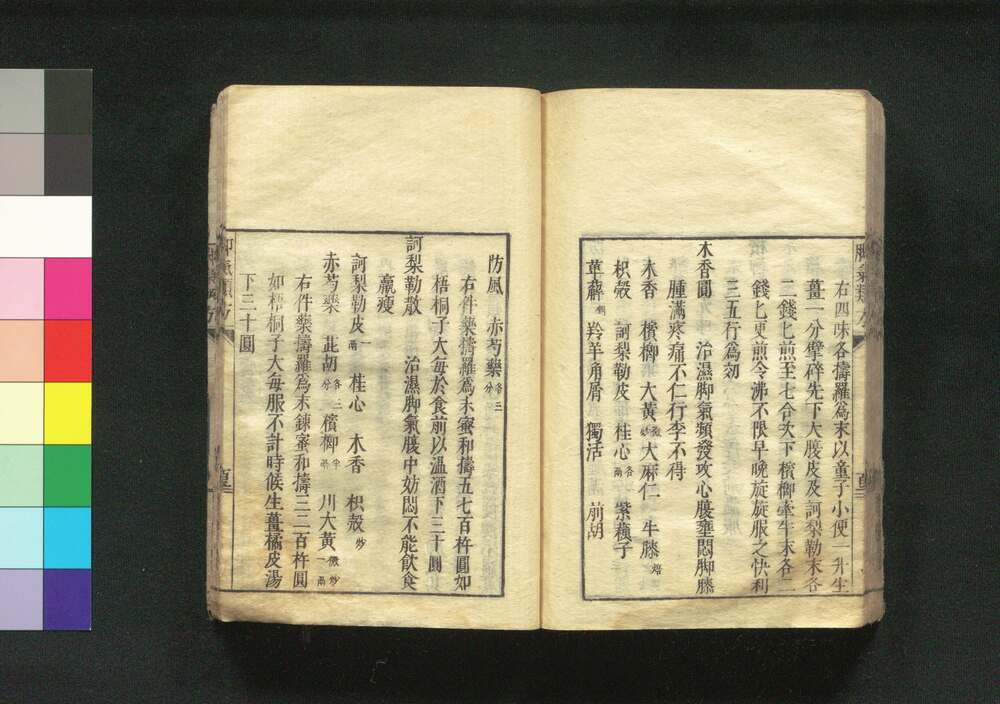 右四味各擣羅為末以童子小便一升生
薑一分擘碎先下大腹皮及訶梨勒末各
二錢匕煎至七合次下檳榔牽牛末各二
錢匕更煎令沸不限早晚旋旋服之快利
三五行為効
木香圓 治濕脚氣頻發攻心腹壅悶脚膝
腫滿疼痛不仁行李不得
木香 檳榔 大黃微炒 大麻仁 牛膝焙
枳殼 訶梨勒皮 桂心各兩 紫蘓子
萆薢 羚羊角屑 獨活 前胡
防風 赤芍藥各三分
右件藥擣羅為末蜜和擣五七百杵圓如
梧桐子大每於食前以溫酒下三十圓
訶梨勒散 治濕脚氣腹中妨悶不能飲食
羸瘦
訶梨勒皮一兩 桂心 木香 枳殼炒
赤芍藥 茈胡各三分 檳榔半兩 川大黃微炒一兩
右件藥擣羅為末鍊蜜和擣三二百杵圓
如梧桐子大每服不計時候生薑橘皮湯
下三十圓